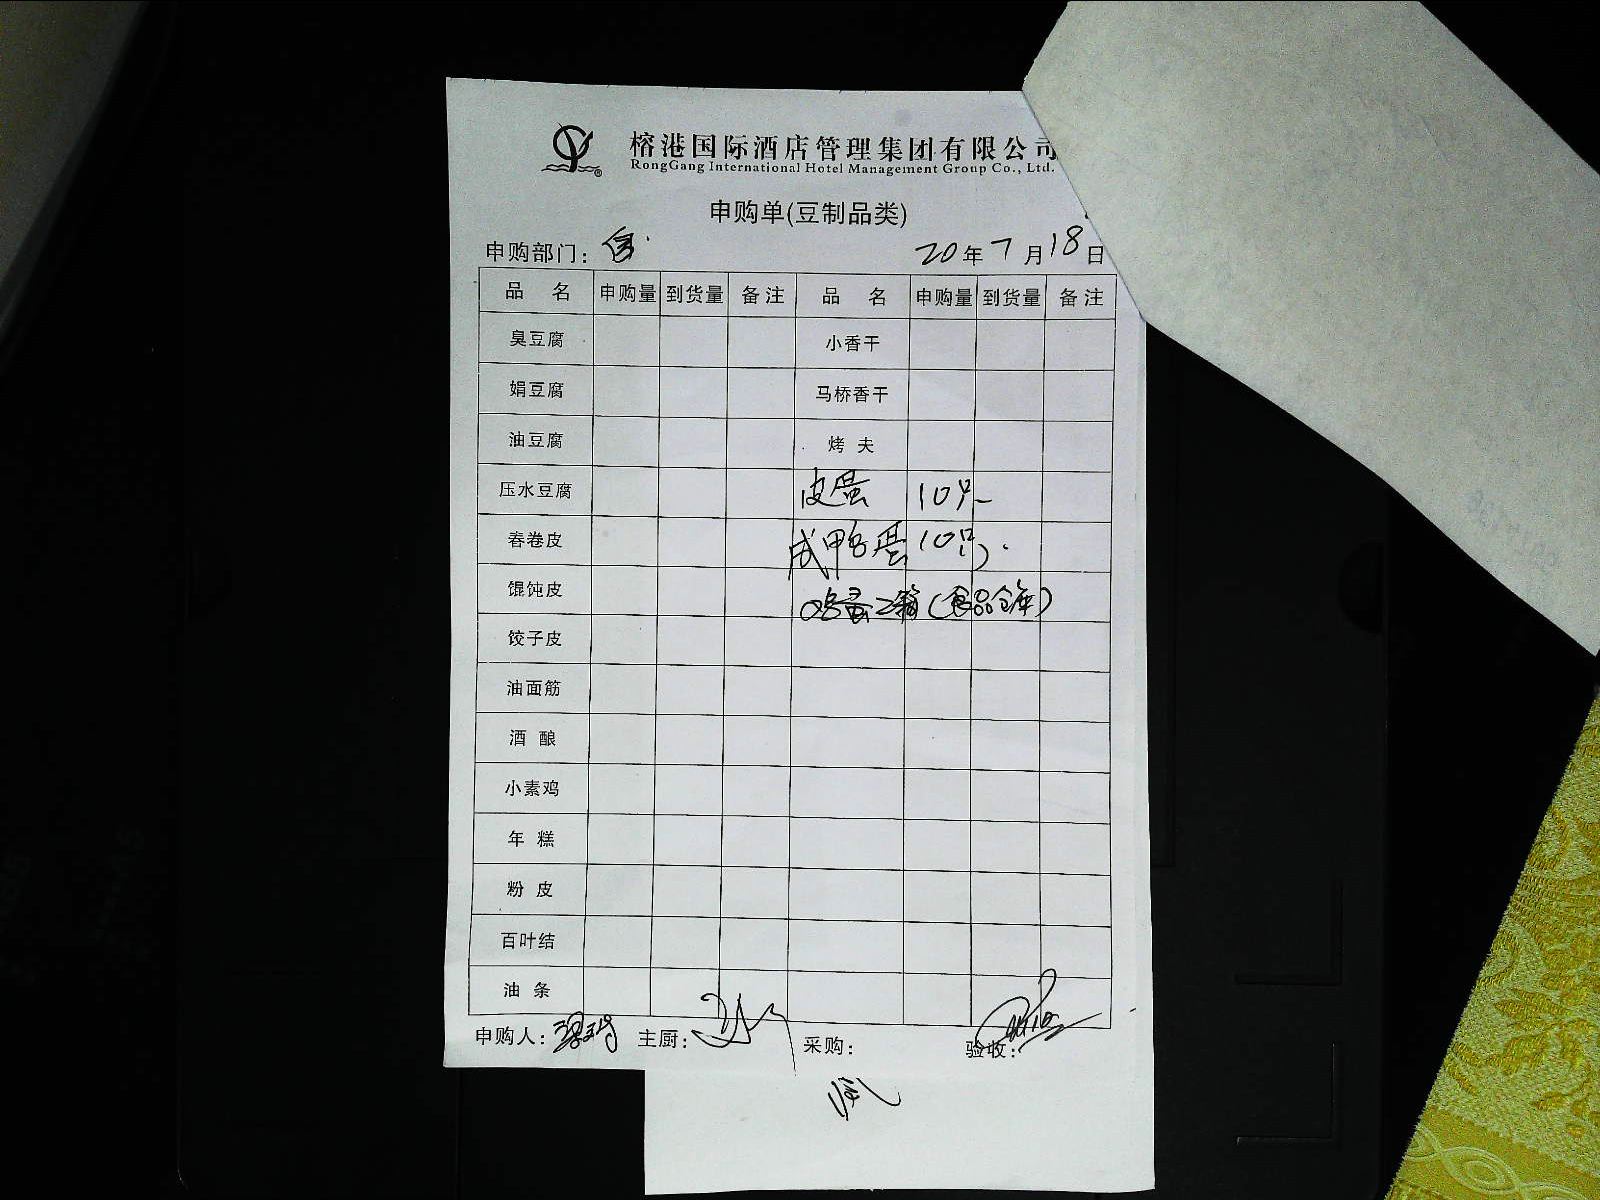 榕港国际酒店管理集团有限公司
RongGang International Hotel Management Group Co., Ltd.
申购单(豆制品类)
申购部门： 20年7月18日
品名 申购量 到货量 备注 品名 申购量 到货量 备注
臭豆腐 小香干
娟豆腐 马桥香干
油豆腐 烤夫
压水豆腐 皮蛋 10只
春卷皮 咸鸭蛋 10只
馄饨皮 鸡蛋2箱(食品仓库)
饺子皮
油面筋
酒酿
小素鸡
年糕
粉皮
百叶结
油条
申购人： 主厨： 采购： 验收：